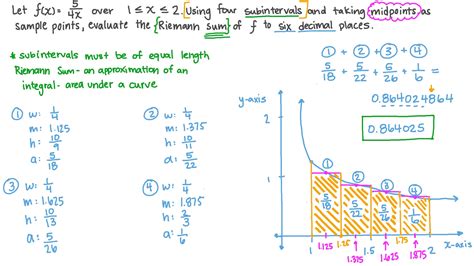 Let f(x) = 5/4x over 1 ≤ x ≤ 2. [Using four subintervals] and taking midpoints as
sample points, evaluate the {Riemann sum} of f to six decimal places.
* subintervals must be of equal length
Riemann Sum - an approximation of an
integral - area under a curve
① + ② + ③ + ④
5/18 + 5/22 + 5/26 + 1/6 =
0.864024864
0.864025
① w: 1/4
m: 1.125
h: 10/9
a: 5/18
② w: 1/4
m: 1.375
h: 10/11
a: 5/22
③ w: 1/4
m: 1.625
h: 10/13
a: 5/26
④ w: 1/4
m: 1.875
h: 2/3
a: 1/6
y-axis
2
1
① ② ③ ④
5/18 5/22 5/26 1/6
1 1.25 1.5 1.75 2 x-axis
1.125 1.375 1.625 1.875